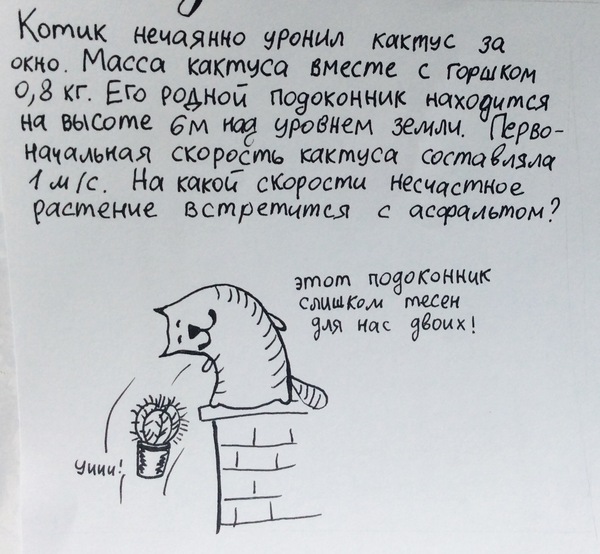 Котик нечаянно уронил кактус за
окно. Масса кактуса вместе с горшком
0,8 кг. Его родной подоконник находится
на высоте 6м над уровнем земли. Перво-
начальная скорость кактуса составляла
1 м/с. На какой скорости несчастное
растение встретится с асфальтом?
этот подоконник
слишком тесен
для нас двоих!
Уиии!